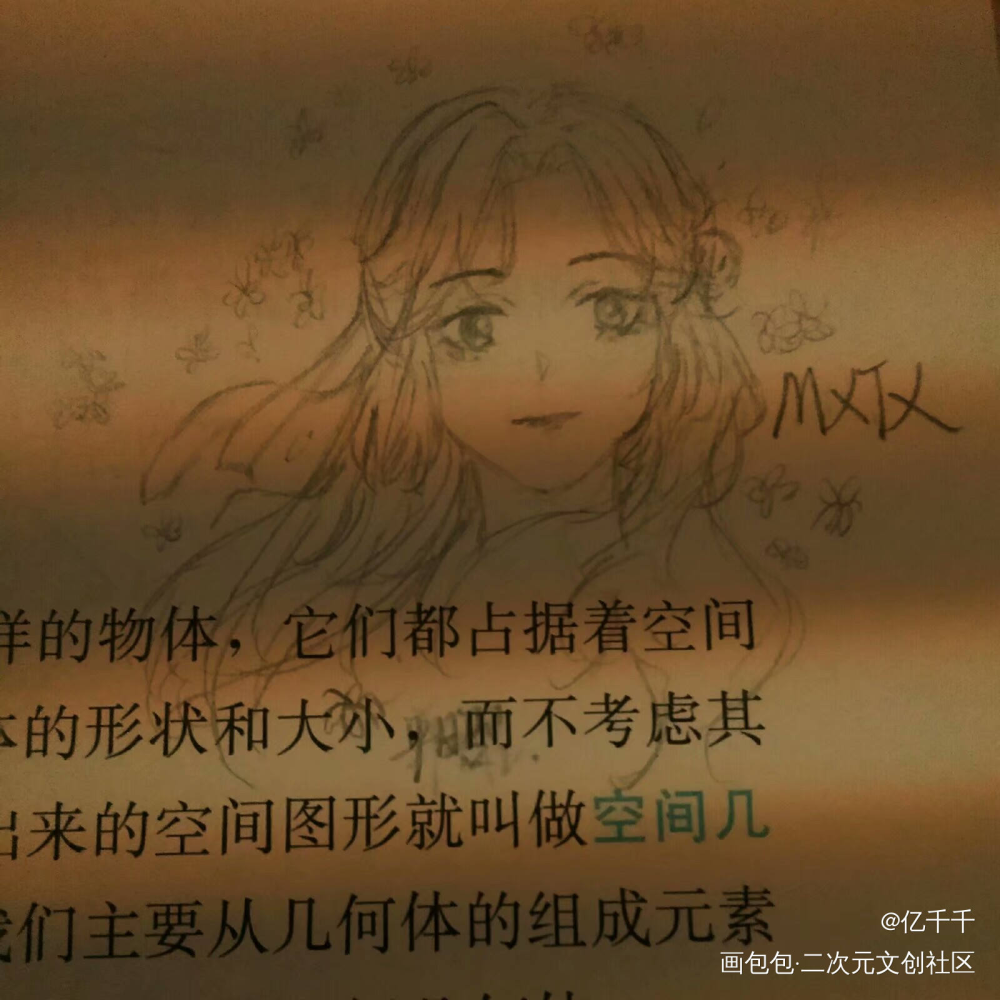 MXTX
样的物体，它们都占据着空间
体的形状和大小，而不考虑其
出来的空间图形就叫做空间几
我们主要从几何体的组成元素
@亿千千
画包包·二次元文创社区